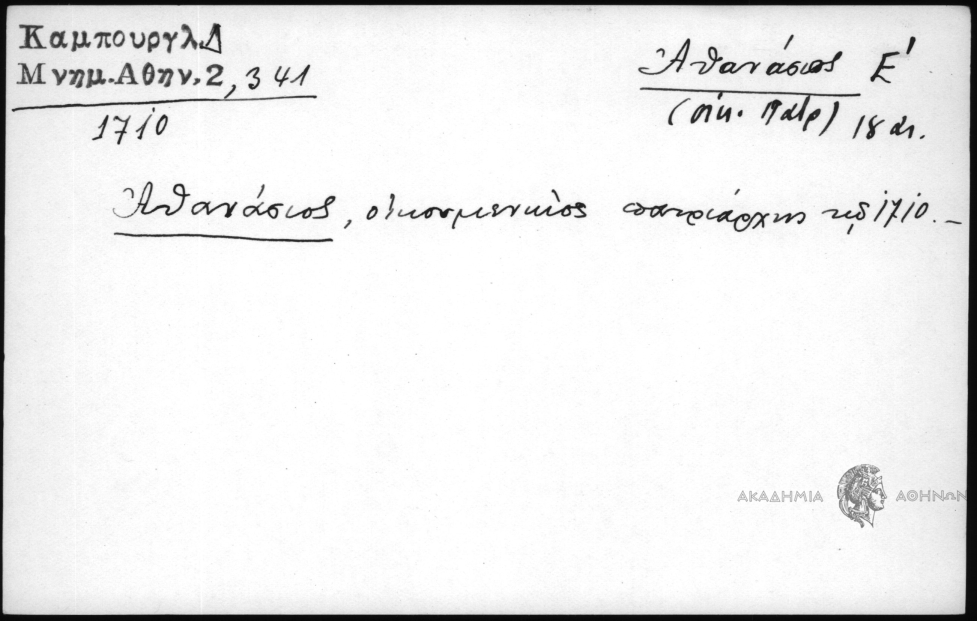 Καμπουργλ.Δ
Μνημ.Αθην.2, 341
1710
Ἀθανάσιος Ε΄
(οἰκ. Πατρ) 18 αι.
Ἀθανάσιος, οἰκουμενικὸς πατριάρχης τῷ 1710. –
ΑΚΑΔΗΜΙΑ ΑΘΗΝΩΝ